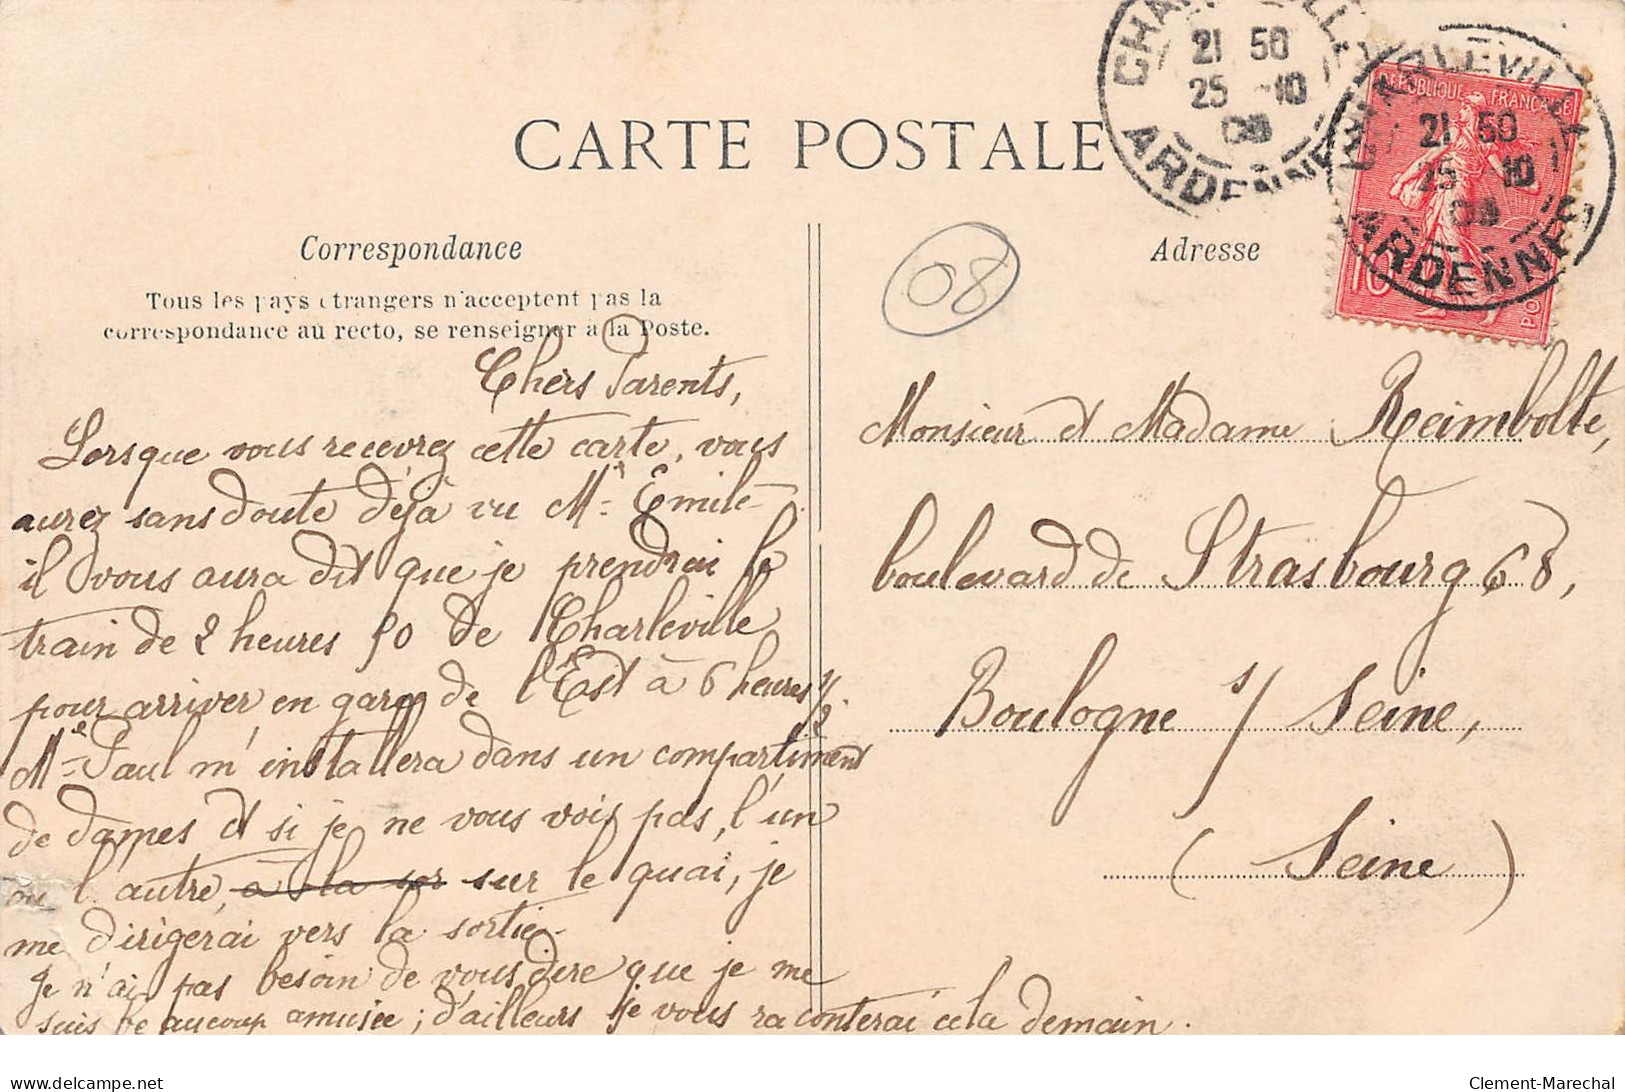 CARTE POSTALE
Correspondance
Tous les pays étrangers n'acceptent pas la
correspondance au recto, se renseigner à la Poste.
Chers Parents,
Lorsque vous recevrez cette carte, vous
aurez sans doute déjà vu Mr Emile
il vous aura dit que je prendrai le
train de 2 heures 50 de Charleville
pour arriver en gare de l'Est à 6 heures 1/2.
Mr Paul m'installera dans un compartiment
de dames et si je ne vous vois pas, l'un
ou l'autre, à la sor sur le quai, je
me dirigerai vers la sortie.
Je n'ai pas besoin de vous dire que je me
suis beaucoup amusée ; d'ailleurs je vous raconterai cela demain.
Adresse
08
Monsieur et Madame Reimbolte,
boulevard de Strasbourg 68,
Boulogne s/ Seine,
(Seine)
CHARLEVILLE
21 50
25 -10
08
ARDENNES
CHARLEVILLE
21 50
25 10
08
ARDENNES
REPUBLIQUE FRANÇAISE
10
Clement-Marechal